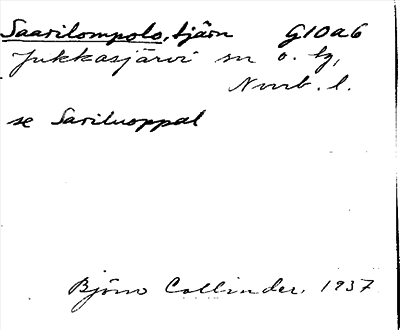 Saarilompolo, tjärn G10a6
Jukkasjärvi sn o. tg,
Norrb. l.
se Sariluoppal
Björn Collinder. 1937